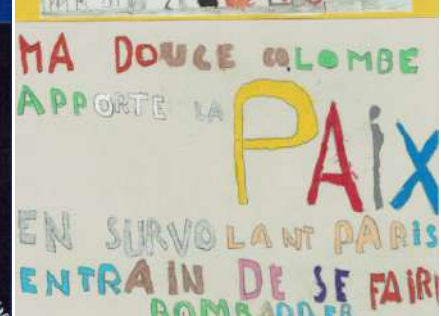 MA DOUCE COLOMBE
APPORTE LA
PAIX
EN SURVOLANT PARIS
ENTRAIN DE SE FAIRE
BOMBARDER